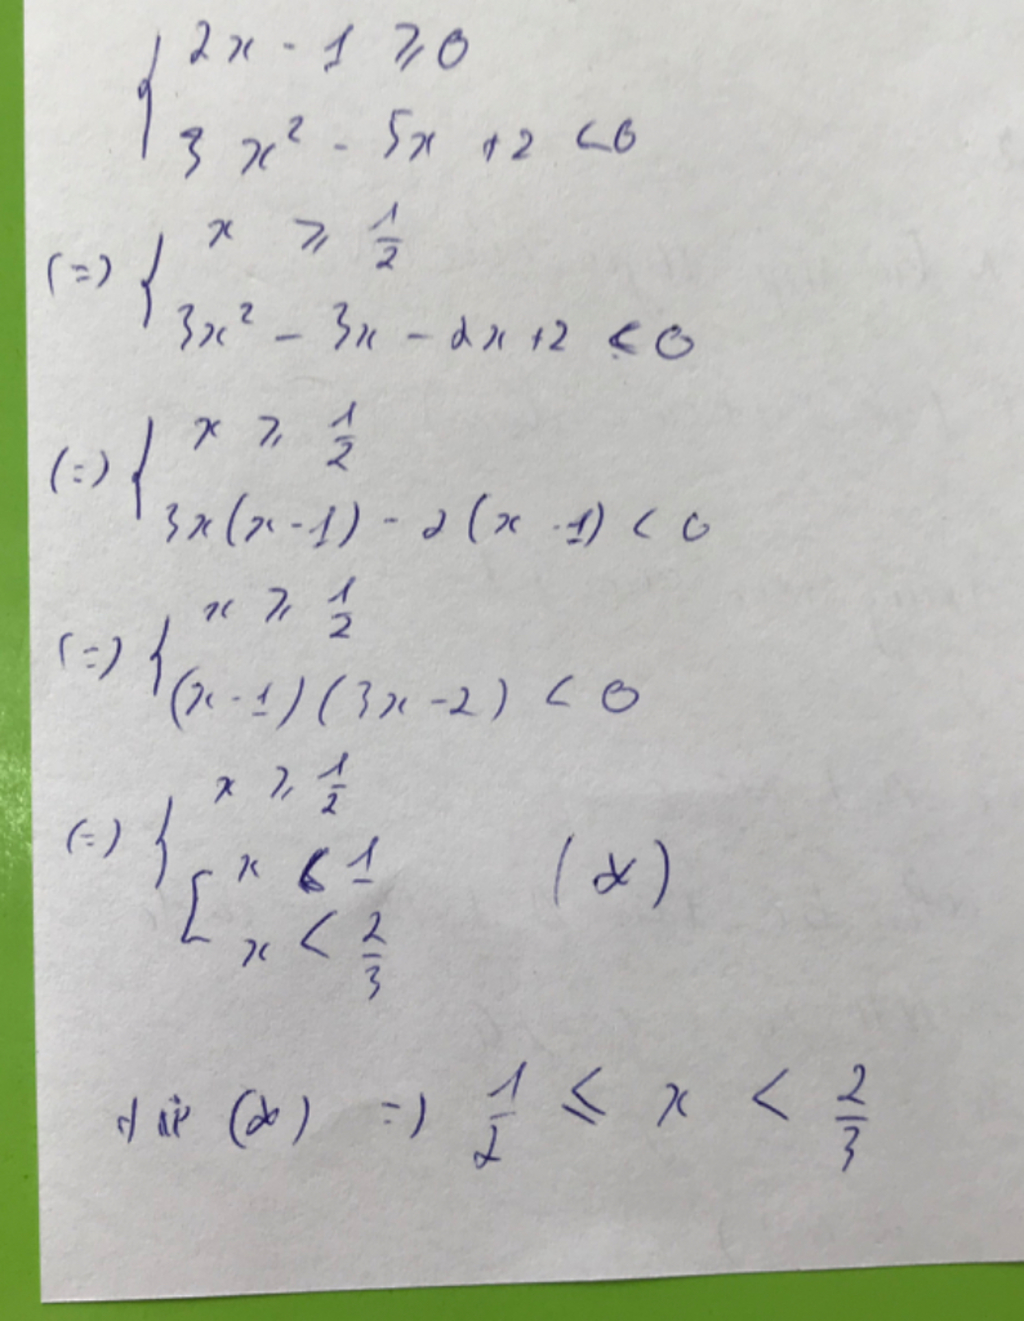 { 2x - 1 ⩾ 0
3x² - 5x + 2 < 0
(=) { x ⩾ 1/2
3x² - 3x - 2x + 2 < 0
(=) { x ⩾ 1/2
3x(x-1) - 2(x-1) < 0
(=) { x ⩾ 1/2
(x-1)(3x-2) < 0
(=) { x ⩾ 1/2
[ x < 1 (*)
x < 2/3
từ (*) =) 1/2 ⩽ x < 2/3